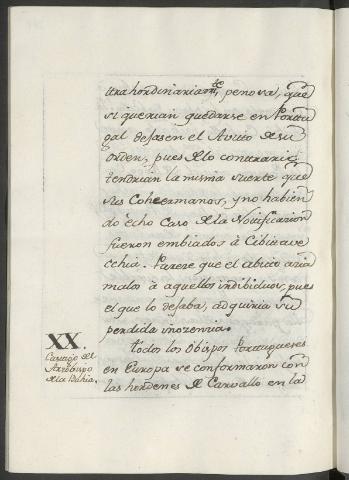 trahordinariam.te penosa, que
si querian quedarse en Portu
gal dejasen el Avito de su
orden, pues de lo contrario
tendrian la misma suerte que
sus Cohermanos, y no habien
do echo Caso de la Notificazion
fueron embiados à Cibitave
cchia. Parece que el abito azia
malos à aquellos indibiduos, pues
el que lo dejaba, adquiria su
perdida inozencia.
XX.
Castigo del
Arzobispo
de la Bahia.
Todos los Obispos Portugueses
en Europa se conformaron con
las hordenes de Carvallo en la